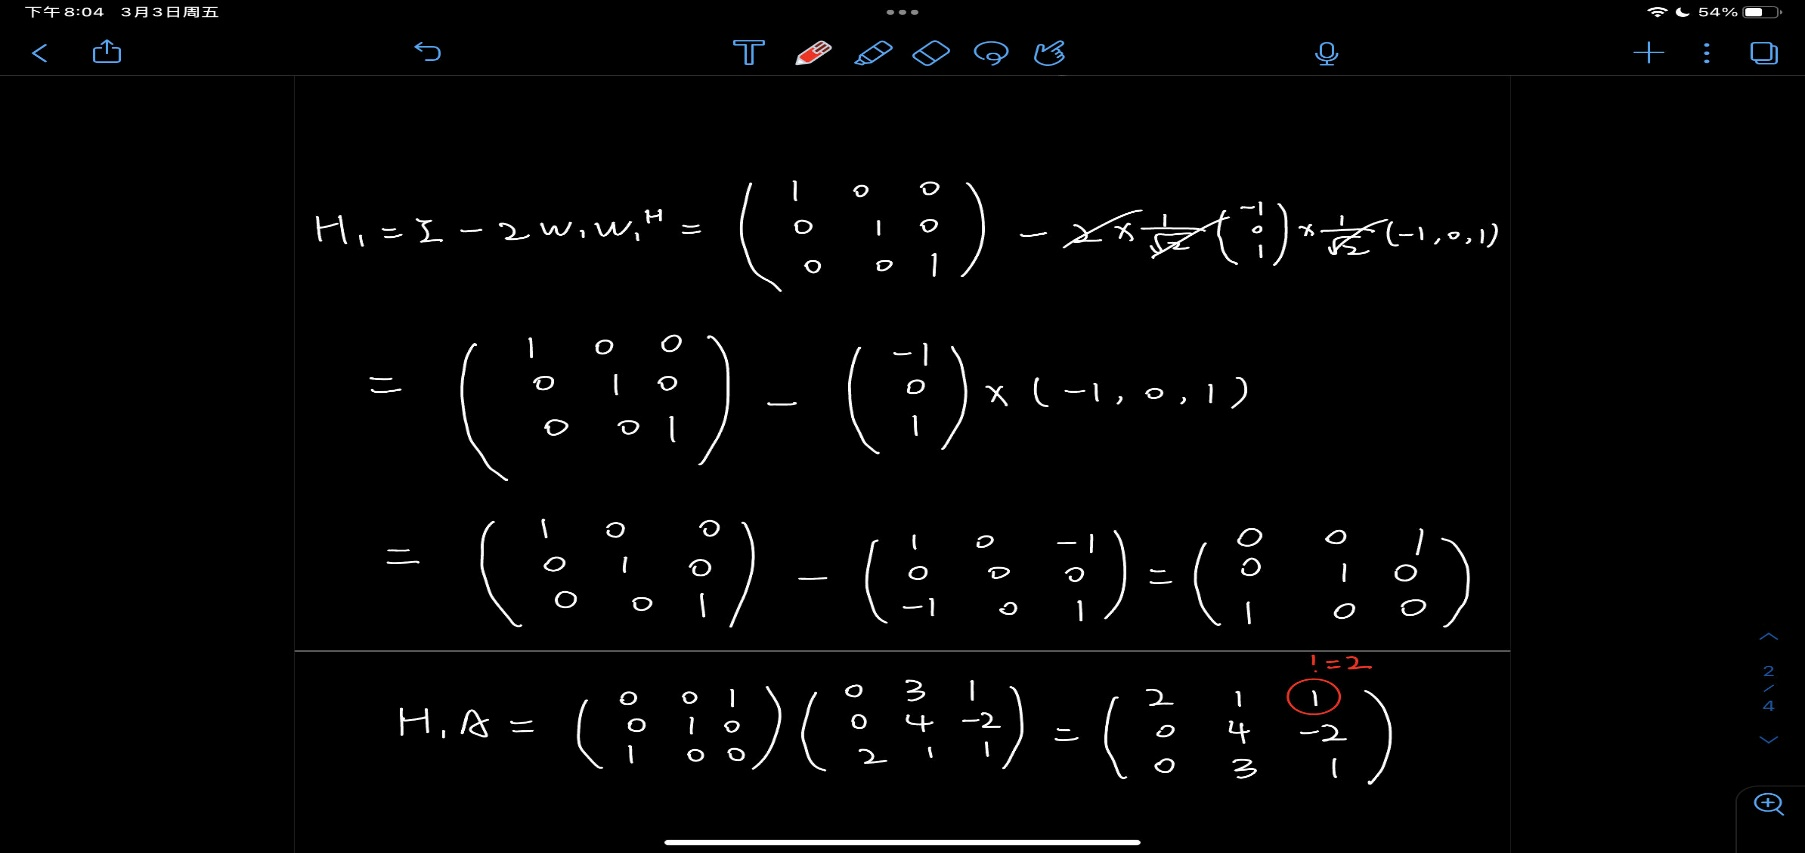 下午8:04 3月3日周五
54%
T
H₁ = I - 2w₁w₁ᴴ = ( 1 0 0
0 1 0
0 0 1 ) - 2 × 1/√2 ( -1
0
1 ) × 1/√2 (-1, 0, 1)
= ( 1 0 0
0 1 0
0 0 1 ) - ( -1
0
1 ) × (-1, 0, 1)
= ( 1 0 0
0 1 0
0 0 1 ) - ( 1 0 -1
0 0 0
-1 0 1 ) = ( 0 0 1
0 1 0
1 0 0 )
!=2
H₁A = ( 0 0 1
0 1 0
1 0 0 ) ( 0 3 1
0 4 -2
2 1 1 ) = ( 2 1 1
0 4 -2
0 3 1 )
2/4